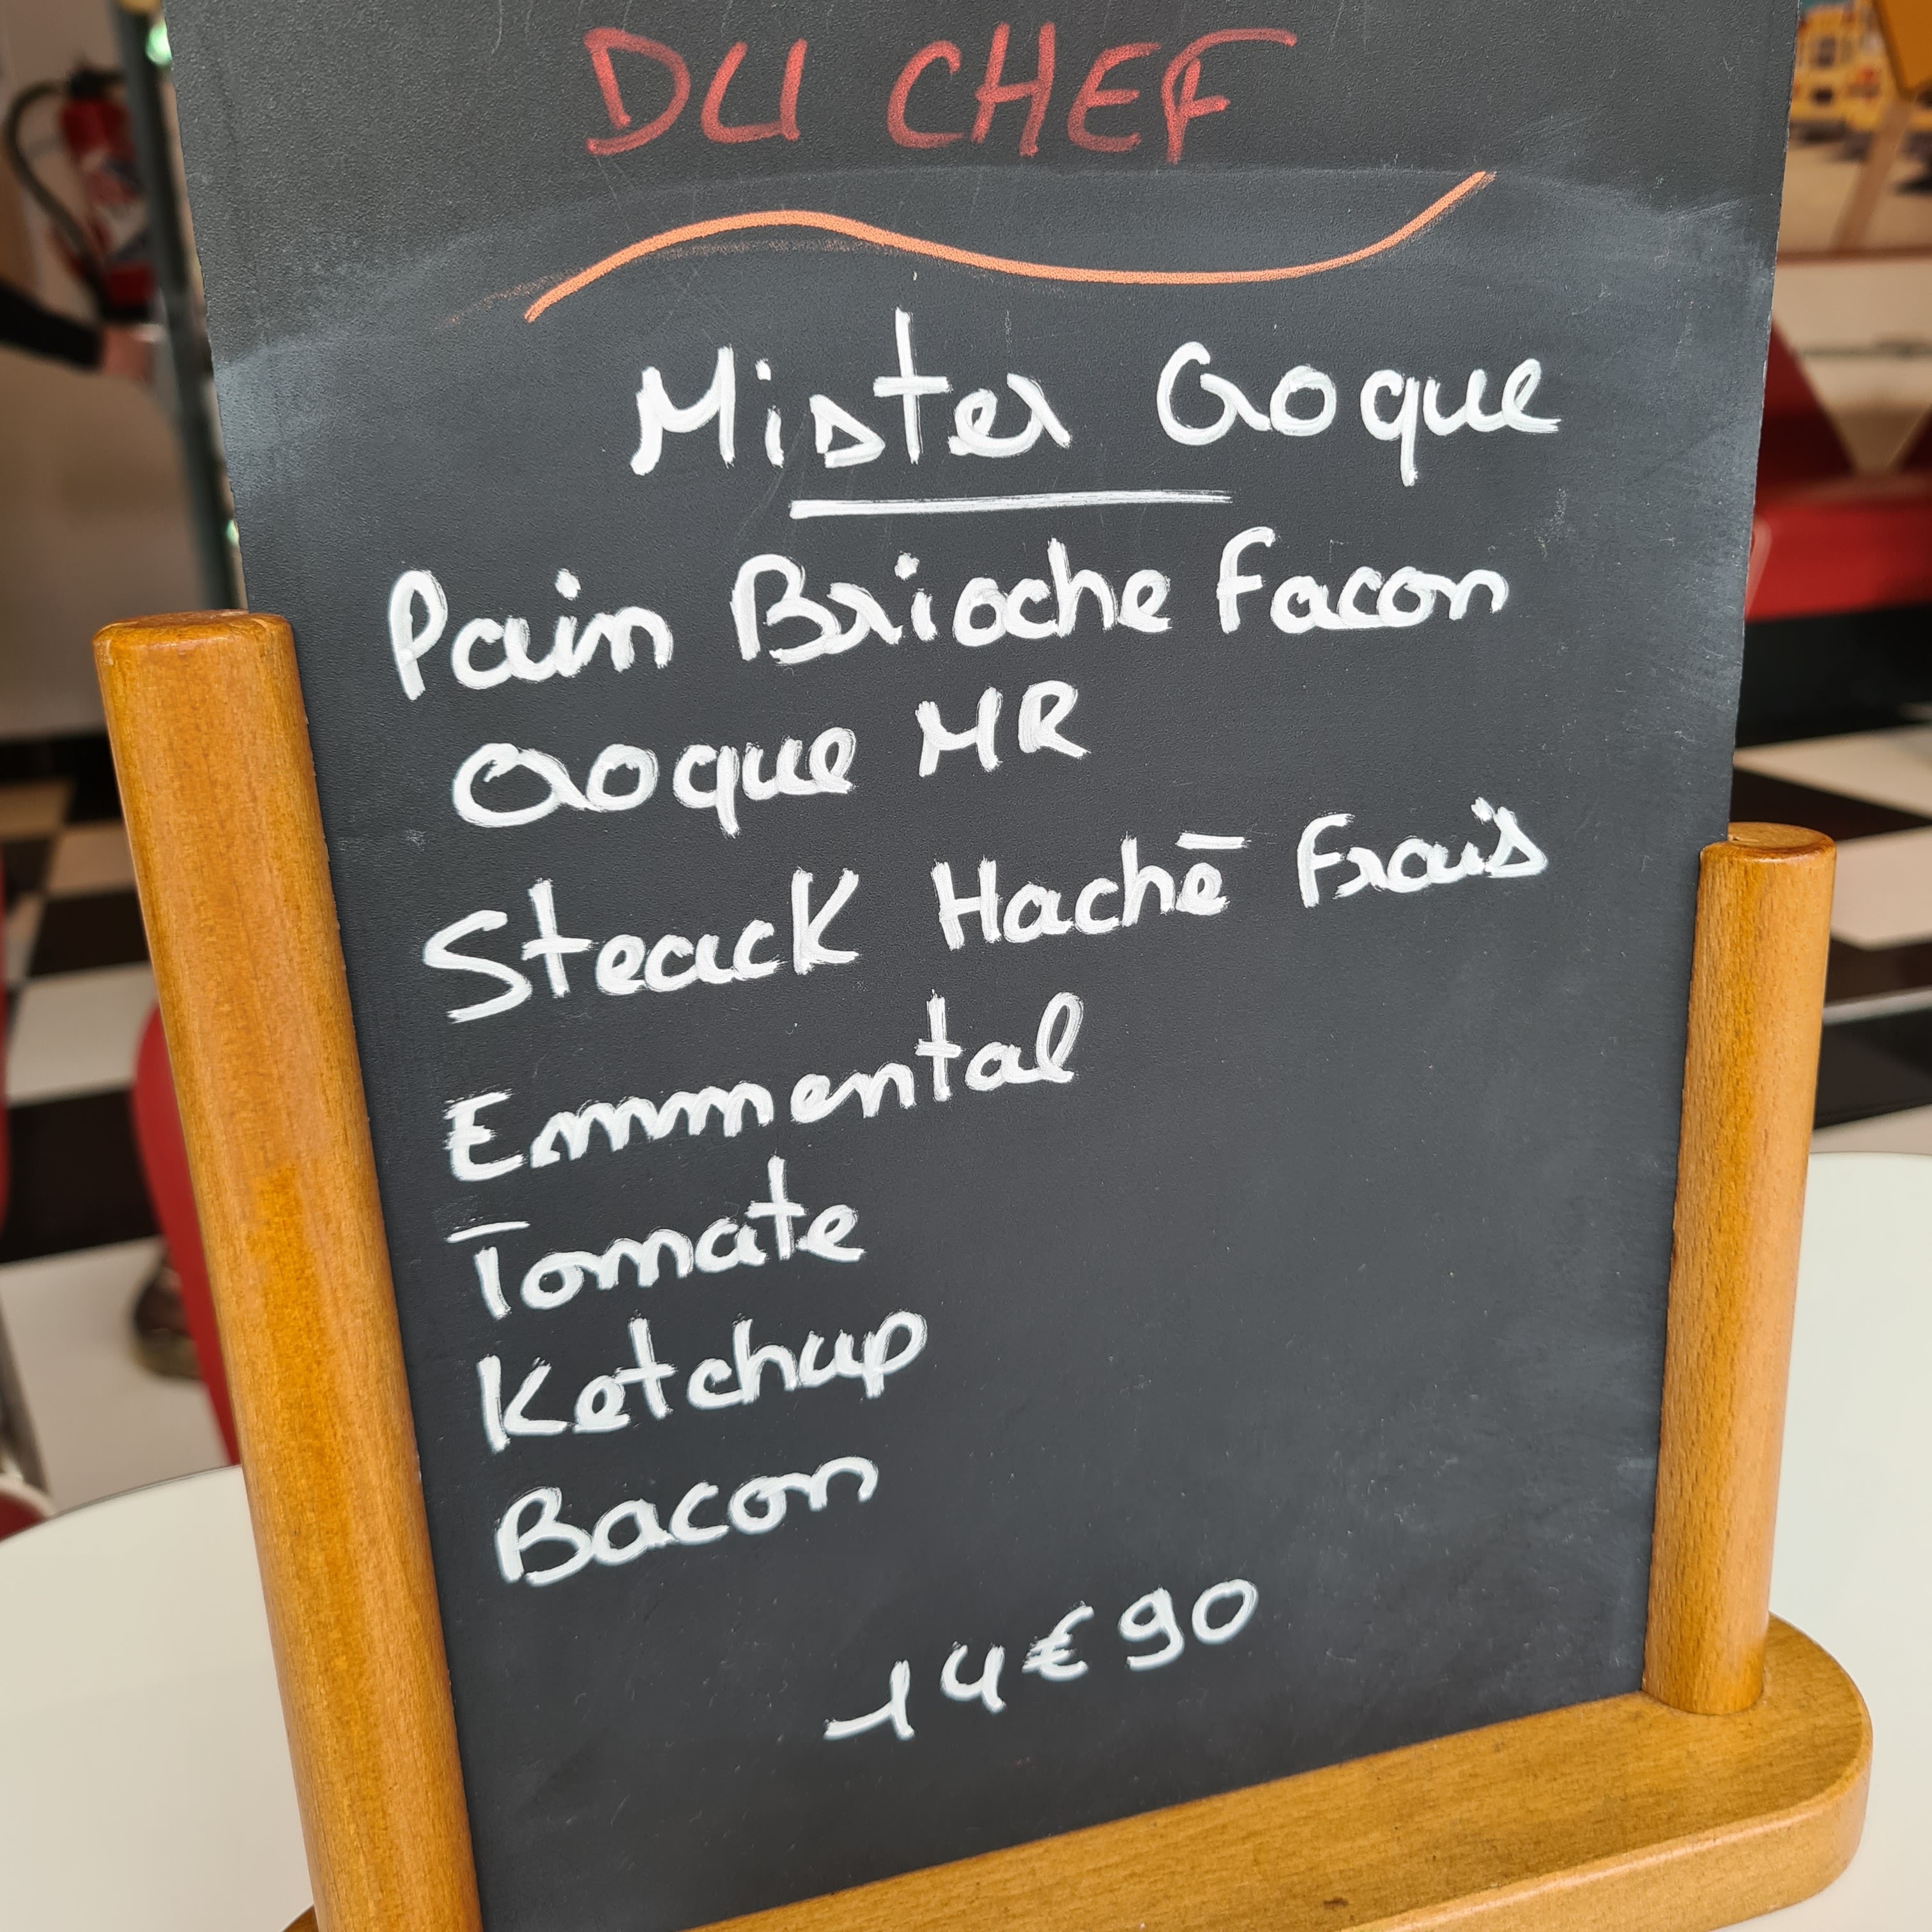 DU CHEF
Mister Croque
Pain Brioche Facon
Croque MR
Steack Haché Frais
Emmental
Tomate
Ketchup
Bacon
14€90